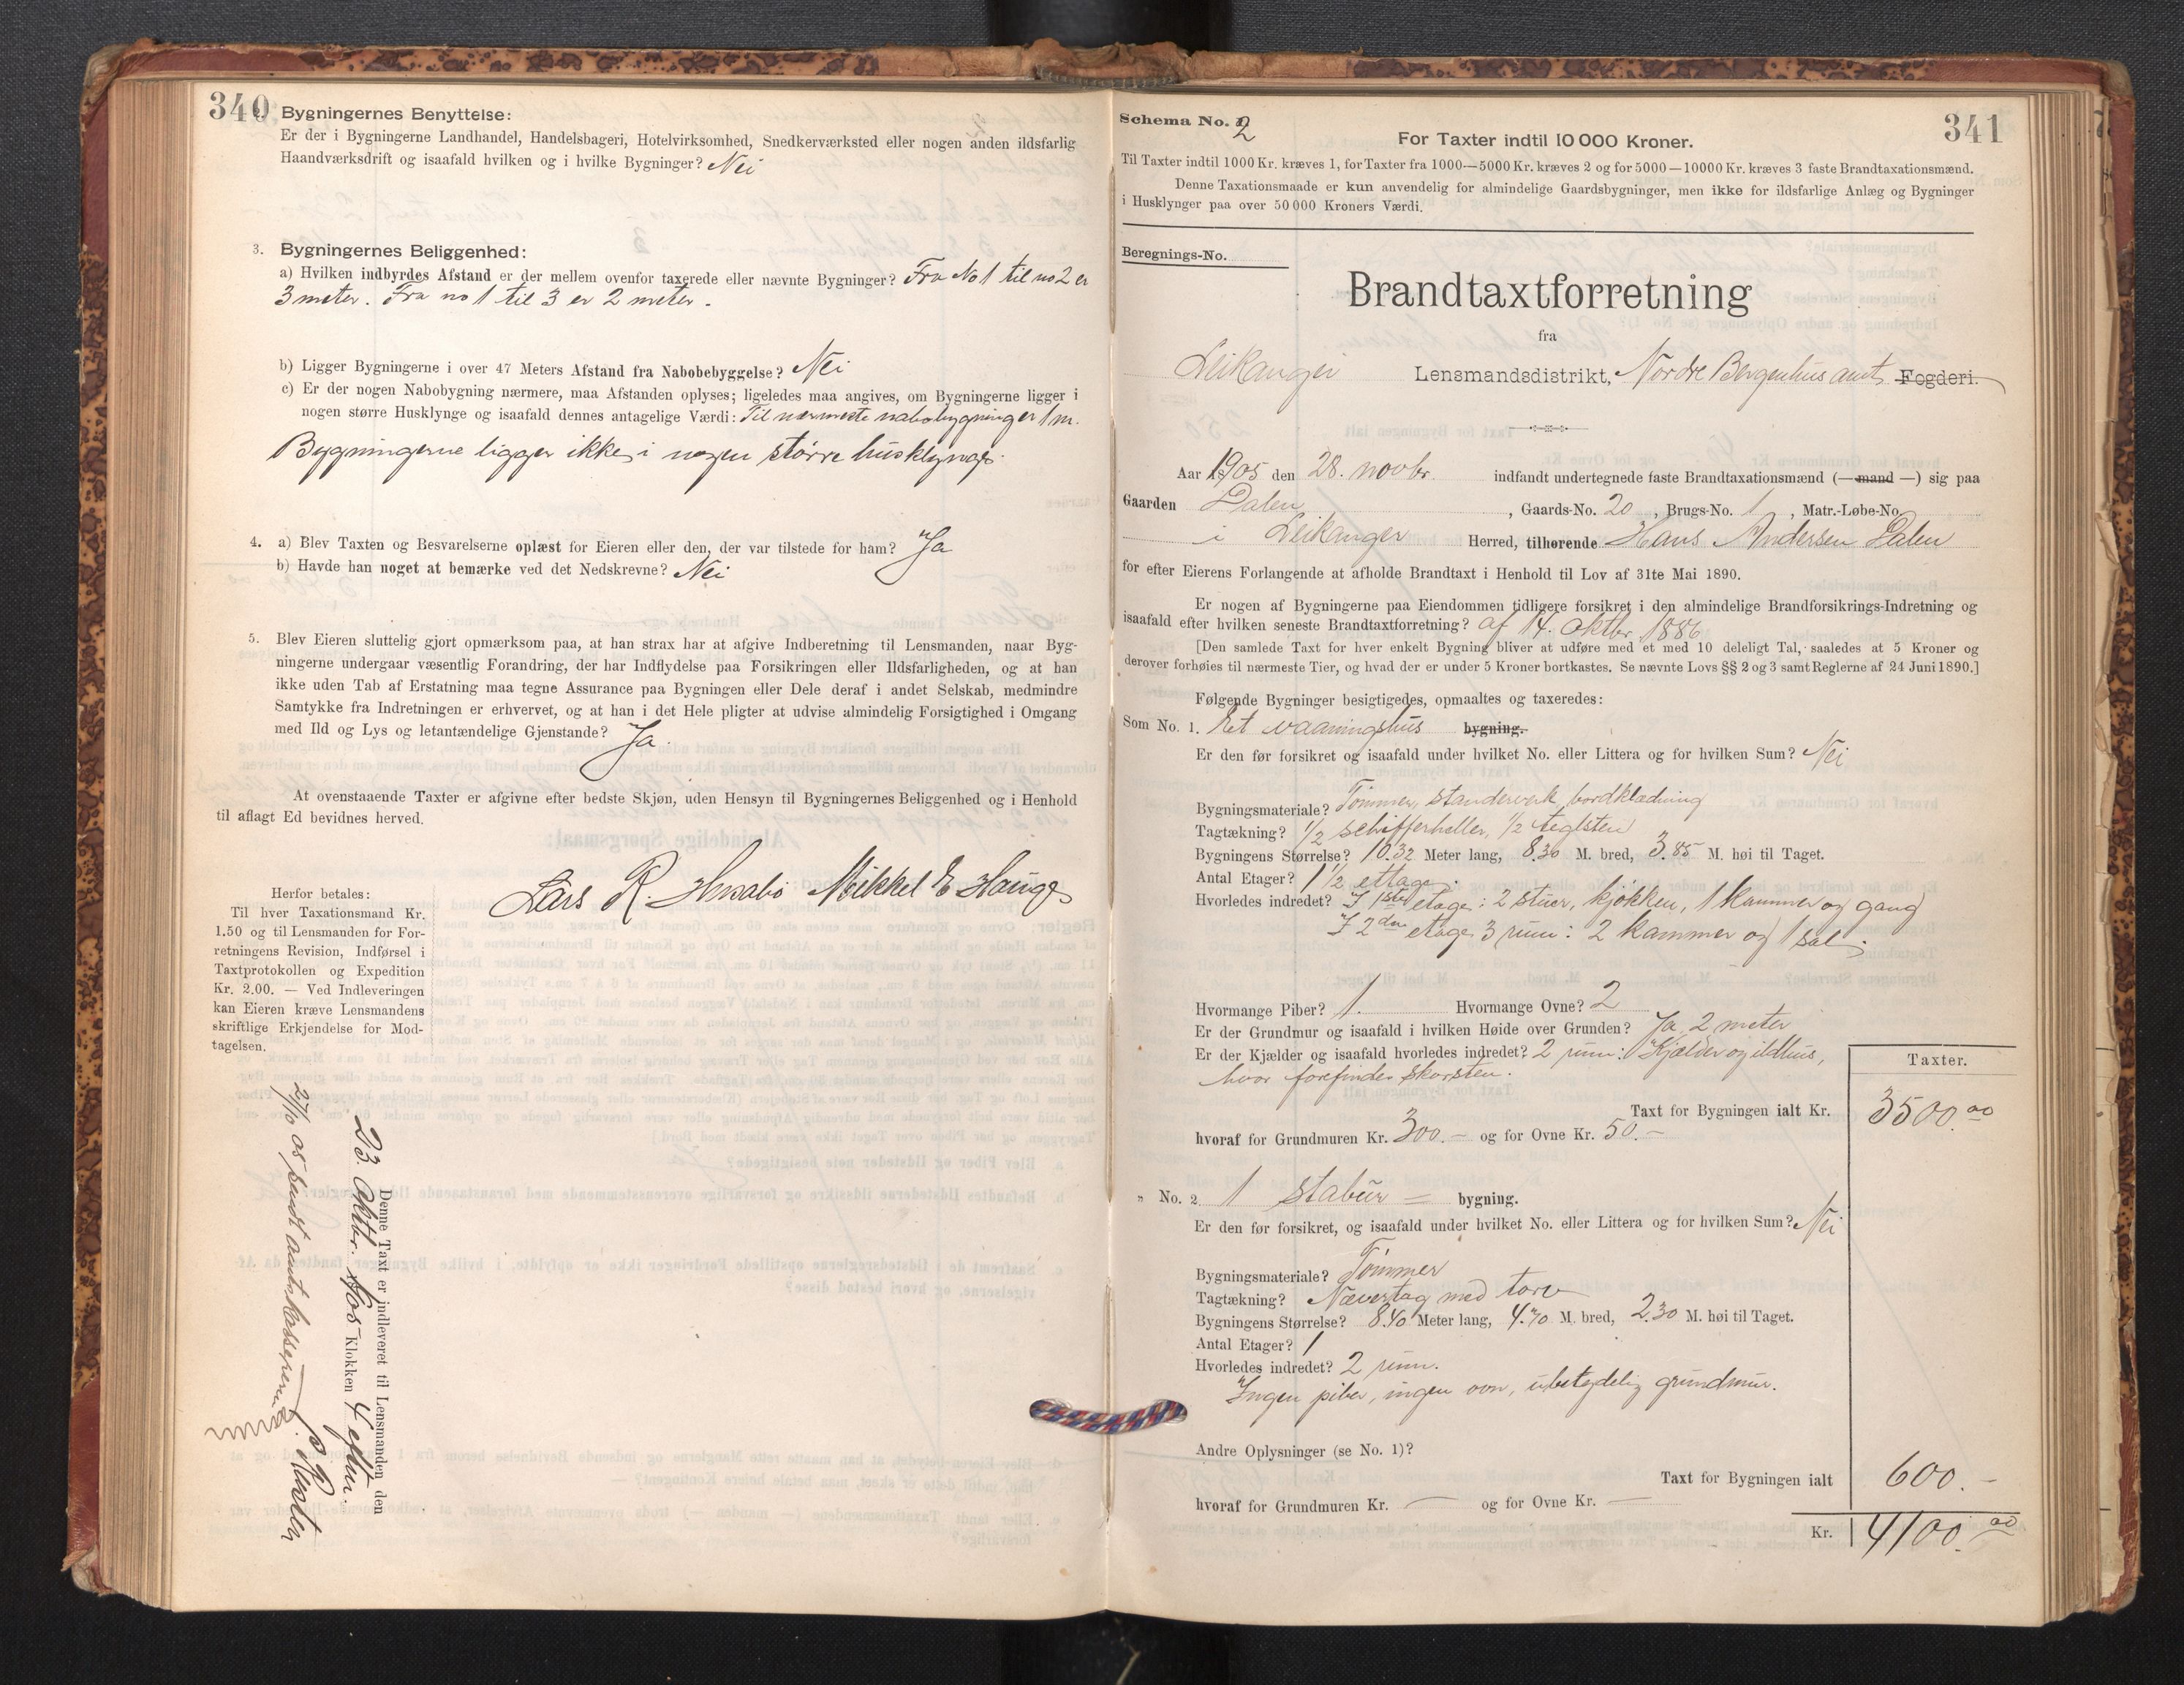 340
Bygningernes Benyttelse:
Er der i Bygningerne Landhandel, Handelsbageri, Hotelvirksomhed, Snedkerværksted eller nogen anden ildsfarlig
Haandværksdrift og isaafald hvilken og i hvilke Bygninger? Nei
3. Bygningernes Beliggenhed:
a) Hvilken indbyrdes Afstand er der mellem ovenfor taxerede eller nævnte Bygninger? Fra No 1 til no 2 er
3 meter. Fra no 1 til 3 er 2 meter.
b) Ligger Bygningerne i over 47 Meters Afstand fra Nabobebyggelse? Nei
c) Er der nogen Nabobygning nærmere, maa Afstanden oplyses; ligeledes maa angives, om Bygningerne ligger i
nogen større Husklynge og isaafald dennes antagelige Værdi: Til nærmeste nabobygning er 1 m.
Bygningerne ligger ikke i nogen större husklynge.
4. a) Blev Taxten og Besvarelserne oplæst for Eieren eller den, der var tilstede for ham? Ja
b) Havde han noget at bemærke ved det Nedskrevne? Nei
5. Blev Eieren sluttelig gjort opmærksom paa, at han strax har at afgive Indberetning til Lensmanden, naar Byg-
ningerne undergaar væsentlig Forandring, der har Indflydelse paa Forsikringen eller Ildsfarligheden, og at han
ikke uden Tab af Erstatning maa tegne Assurance paa Bygningen eller Dele deraf i andet Selskab, medmindre
Samtykke fra Indretningen er erhvervet, og at han i det Hele pligter at udvise almindelig Forsigtighed i Omgang
med Ild og Lys og letantændelige Gjenstande? Ja.
At ovenstaaende Taxter er afgivne efter bedste Skjøn, uden Hensyn til Bygningernes Beliggenhed og i Henhold
til aflagt Ed bevidnes herved.
Lars R. Husabö Mikkel E Hauge
Herfor betales:
Til hver Taxationsmand Kr.
1.50 og til Lensmanden for For-
retningens Revision, Indførsel i
Taxtprotokollen og Expedition
Kr. 2.00. — Ved Indleveringen
kan Eieren kræve Lensmandens
skriftlige Erkjendelse for Mod-
tagelsen.
Denne Taxt er indleveret til Lensmanden den
23. Oktbr. 1905 Klokken 4 eftm.
27/10 05 sendt amtskassereren.
Schema No. 2
341
For Taxter indtil 10 000 Kroner.
Til Taxter indtil 1000 Kr. kræves 1, for Taxter fra 1000—5000 Kr. kræves 2 og for 5000—10000 Kr. kræves 3 faste Brandtaxationsmænd.
Denne Taxationsmaade er kun anvendelig for almindelige Gaardsbygninger, men ikke for ildsfarlige Anlæg og Bygninger
i Husklynger paa over 50 000 Kroners Værdi.
Beregnings-No.
Brandtaxtforretning
fra
Leikanger Lensmandsdistrikt, Nordre Bergenhus amt Fogderi.
Aar 1905 den 28. novbr. indfandt undertegnede faste Brandtaxationsmænd (— mand —) sig paa
Gaarden Dalen, Gaards-No. 20, Brugs-No. 1, Matr.-Løbe-No.
i Leikanger Herred, tilhørende Hans Andersen Dalen
for efter Eierens Forlangende at afholde Brandtaxt i Henhold til Lov af 31te Mai 1890.
Er nogen af Bygningerne paa Eiendommen tidligere forsikret i den almindelige Brandforsikrings-Indretning og
isaafald efter hvilken seneste Brandtaxtforretning? af 14. oktbr. 1886
[Den samlede Taxt for hver enkelt Bygning bliver at udføre med et med 10 deleligt Tal, saaledes at 5 Kroner og
derover forhøies til nærmeste Tier, og hvad der er under 5 Kroner bortkastes. Se nævnte Lovs §§ 2 og 3 samt Reglerne af 24 Juni 1890.]
Følgende Bygninger besigtigedes, opmaaltes og taxeredes:
Som No. 1. Et vaaningshus bygning.
Er den før forsikret og isaafald under hvilket No. eller Littera og for hvilken Sum? Nei
Bygningsmateriale? Tömmer, standerverk, bordklædning
Tagtækning? 1/2 schifferheller, 1/2 teglsten
Bygningens Størrelse? 10.32 Meter lang, 8.30 M. bred, 3.85 M. høi til Taget.
Antal Etager? 1 1/2 ettage.
Hvorledes indredet? I 1ste etage: 2 stuer, kjökken, 1 kammer og gang
I 2den etage 3 rum: 2 kammer og 1 sal.
Hvormange Piber? 1. Hvormange Ovne? 2
Er der Grundmur og isaafald i hvilken Høide over Grunden? Ja, 2 meter
Er der Kjælder og isaafald hvorledes indredet? 2 rum: Kjælder og ildhus,
hvor forefindes skorsten.
Taxter.
Taxt for Bygningen ialt Kr. 3500.00
hvoraf for Grundmuren Kr. 300.— og for Ovne Kr. 50.—
" No. 2 1 stabur — bygning.
Er den før forsikret, og isaafald under hvilket No. eller Littera og for hvilken Sum? Nei
Bygningsmateriale? Tömmer
Tagtækning? Nævertag med torv
Bygningens Størrelse? 8.40 Meter lang, 4.70 M. bred, 2.30 M. høi til Taget.
Antal Etager? 1
Hvorledes indredet? 2 rum.
Ingen piber, ingen ovn, ubetydelig grundmur.
Andre Oplysninger (se No. 1)?
Taxt for Bygningen ialt 600.—
hvoraf for Grundmuren Kr. — og for Ovne Kr. —
Kr. 4100.00